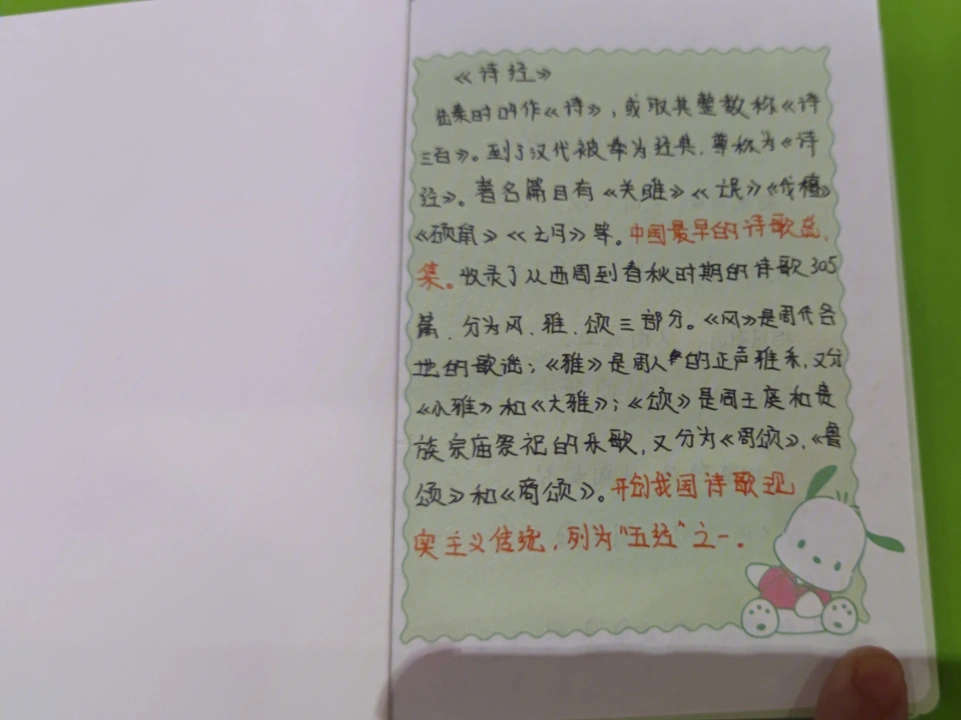 《诗经》
出来时的作《诗》，或取其整数称《诗
三百》。到了汉代被奉为经典，尊称为《诗
经》。著名篇目有《关雎》《氓》《伐檀》
《硕鼠》《七月》等。中国最早的诗歌总
集。收录了从西周到春秋时期的诗歌305
篇，分为风、雅、颂三部分。《风》是周代各
地的歌谣；《雅》是周人的正声雅乐，又分
《小雅》和《大雅》；《颂》是周王庭和贵
族宗庙祭祀的乐歌，又分为《周颂》、《鲁
颂》和《商颂》。开创我国诗歌现
实主义传统，列为“五经”之一.